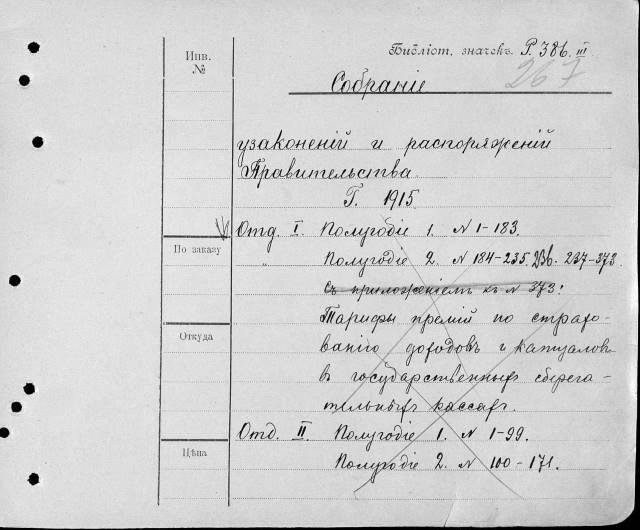 Библіот. значекъ Р. 386. III
267
Инв.
№
Собраніе
узаконеній и распоряженій
Правительства.
Г. 1915.
Отд. I. Полугодіе 1. N 1-183.
По заказу
" Полугодіе 2. N 184-235. 236. 237-373.
съ приложеніемъ къ N 373:
Тарифы премій по страхо-
Откуда
ванію доходовъ и капиталовъ
въ государственныхъ сберега-
тельныхъ кассахъ.
Отд. II. Полугодіе 1. N 1-99.
Цѣна
Полугодіе 2. N 100-171.